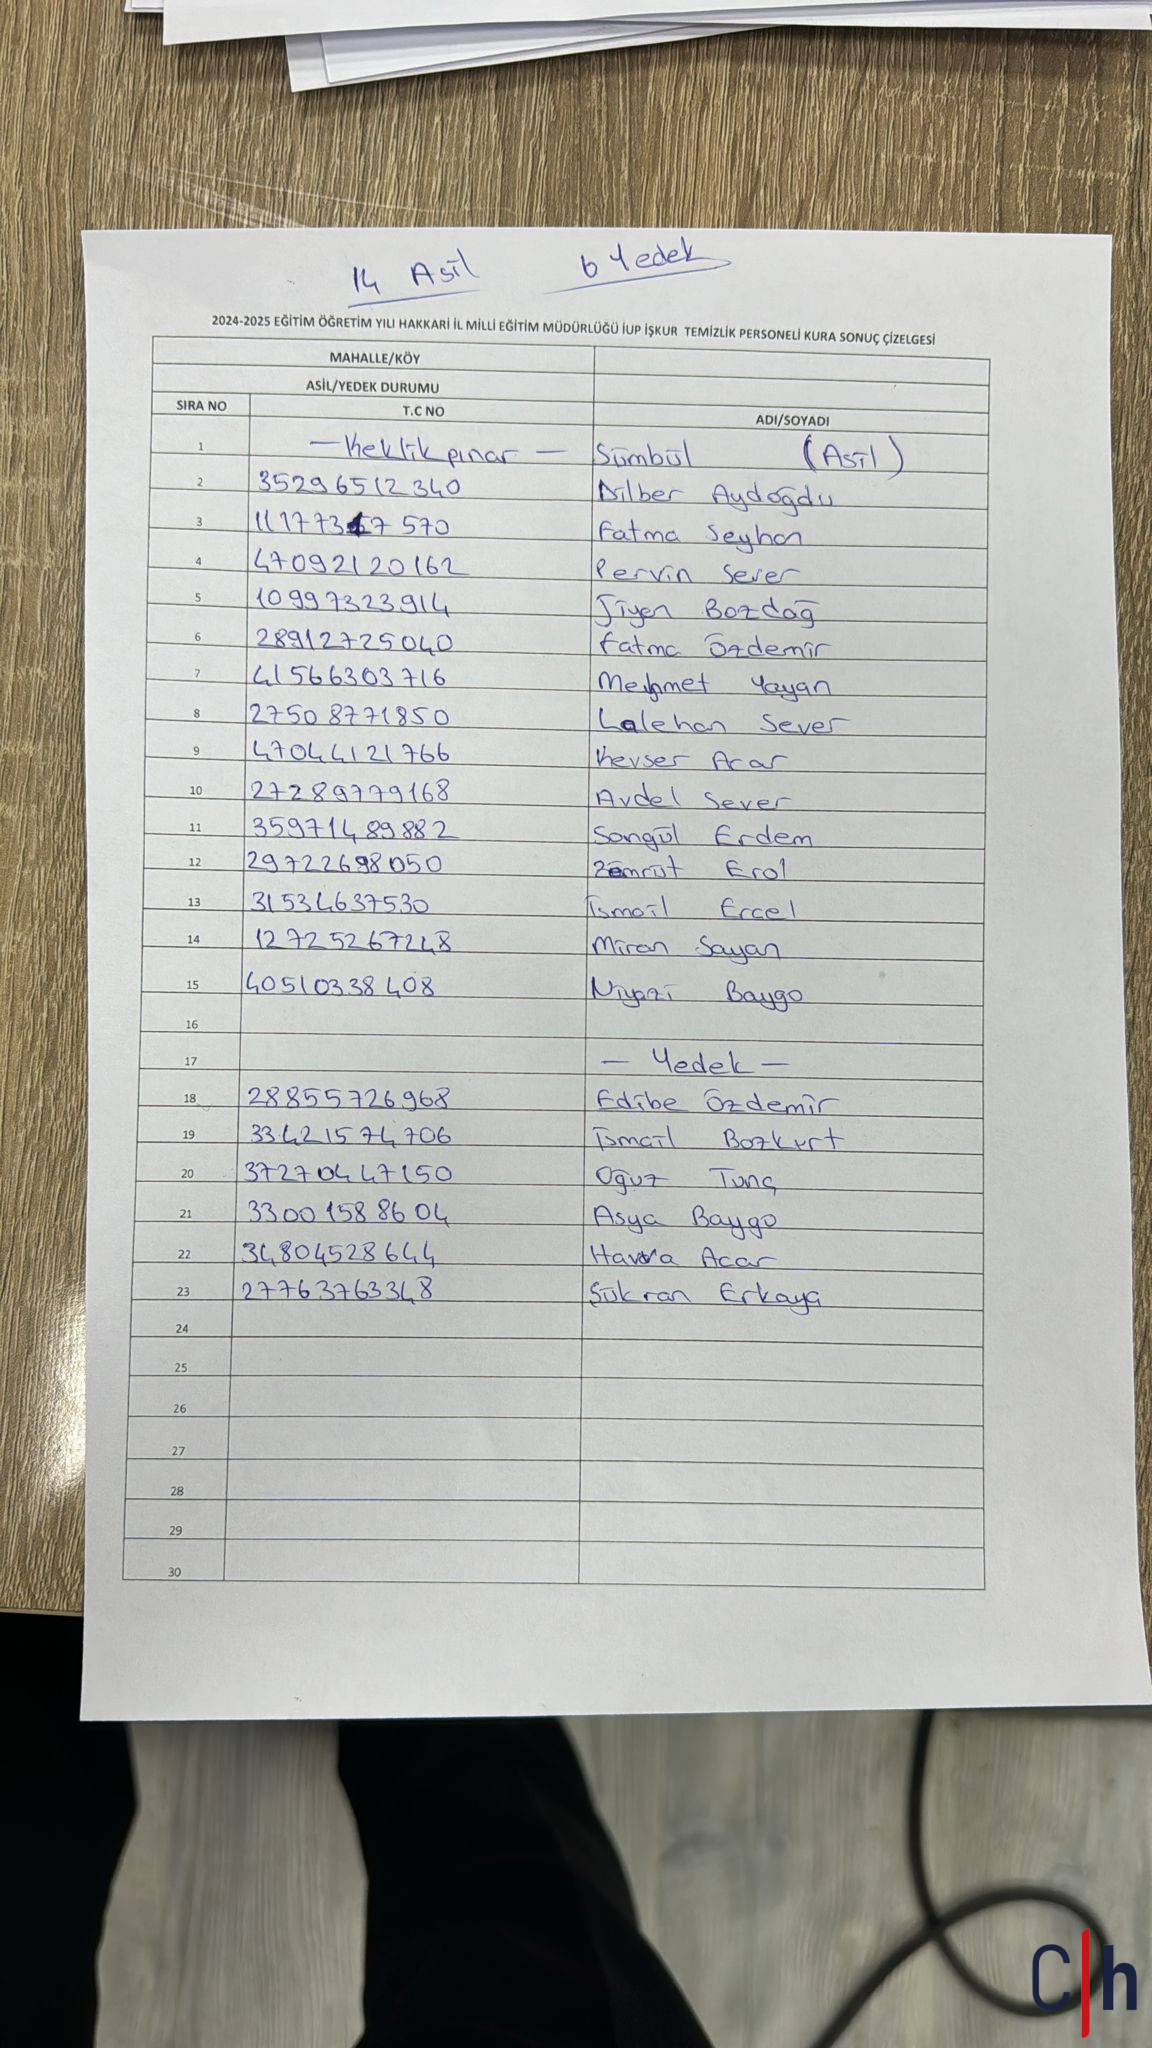 14 Asil 6 Yedek
2024-2025 EĞİTİM ÖĞRETİM YILI HAKKARİ İL MİLLİ EĞİTİM MÜDÜRLÜĞÜ İUP İŞKUR TEMİZLİK PERSONELİ KURA SONUÇ ÇİZELGESİ
MAHALLE/KÖY
ASİL/YEDEK DURUMU
SIRA NO T.C NO ADI/SOYADI
1 — Keklikpınar — Sümbül (Asil)
2 35296512340 Dilber Aydoğdu
3 Fatma Seyhan
4 47092120162 Pervin Sever
5 10997323914 Jiyen Bozdağ
6 28912725040 Fatma Özdemir
7 41566303716 Mehmet Yayan
8 27508771850 Lalehan Sever
9 47044121766 Kevser Acar
10 27289779168 Avdel Sever
11 35971489882 Songül Erdem
12 29722698050 Zümrüt Erol
13 31534637530 İsmail Ercel
14 12725267248 Miran Sayan
15 40510338408 Niyazi Baygo
16
17 — Yedek —
18 28855726968 Edibe Özdemir
19 33421574706 İsmail Bozkurt
20 37270447150 Oğuz Tunç
21 33001588604 Asya Baygo
22 34804528644 Havva Acar
23 27763763348 Şükran Erkaya
24
25
26
27
28
29
30
C|h